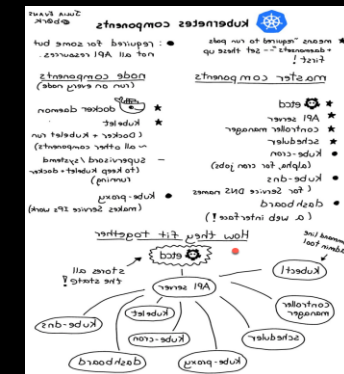 Julia Evans
@b0rk
kubernetes components
★ means "required to run pods
+ daemonsets" -- set these up
first!
● : required for some but
not all API resources.
master components
★ etcd
★ API server
★ controller manager
★ scheduler
● kube-cron
(alpha, for cron jobs)
● kube-dns
(for Service DNS names
● dashboard
(a web interface!)
node components
(run on every node)
★ docker daemon
★ kubelet
(Docker + kubelet run
~ all other components)
~ supervisord/systemd
(to keep kubelet + docker
running)
● kube-proxy
(makes Service IPs work)
How they fit together
etcd
stores all
the state!
command line
admin tool
kubectl
API server
controller
manager
scheduler
kube-proxy
kube-cron
kubelet
dashboard
kube-dns